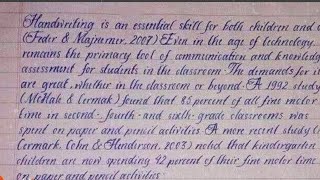 Handwriting is an essential skill for both children and
(Feder & Majnemer, 2007) Even in the age of technology
remains the primary tool of communication and knowledg
assessment for students in the classroom. The demands for it
are great, whether in the classroom or beyond. A 1992 study
(McHale & Cermak) found that 85 percent of all fine motor
time in second- fourth- and sixth- grade classrooms was
spent on paper and pencil activities. A more recent study (
Cermark, Cohn & Henderson, 2003) noted that kindergarten
children are now spending 42 percent of their fine motor time
on paper and pencil activities